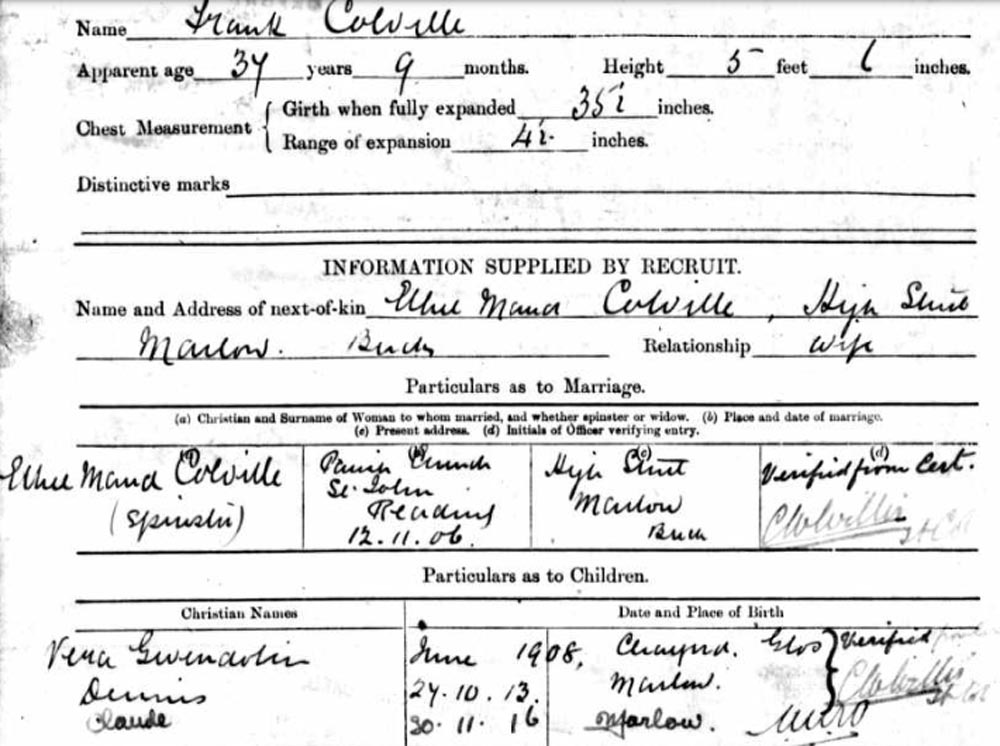 Name Frank Colville
Apparent age 37 years 9 months. Height 5 feet 6 inches.
Chest Measurement { Girth when fully expanded 35½ inches.
Range of expansion 4½ inches.
Distinctive marks
INFORMATION SUPPLIED BY RECRUIT.
Name and Address of next-of-kin Ethel Maud Colville, High Street
Marlow. Bucks Relationship wife
Particulars as to Marriage.
(a) Christian and Surname of Woman to whom married, and whether spinster or widow. (b) Place and date of marriage.
(c) Present address. (d) Initials of Officer verifying entry.
Ethel Maud Colville
(Spinster)
(b)
Parish Church
St. John
Reading
12.11.06.
(c)
High Street
Marlow
Bucks
(d)
Verified from Cert.
Particulars as to Children.
Christian Names Date and Place of Birth
Vera Gwendolin June 1908, Glos } Verified
Dennis 27.10.13. Marlow.
Claude 30.11.16 Marlow.